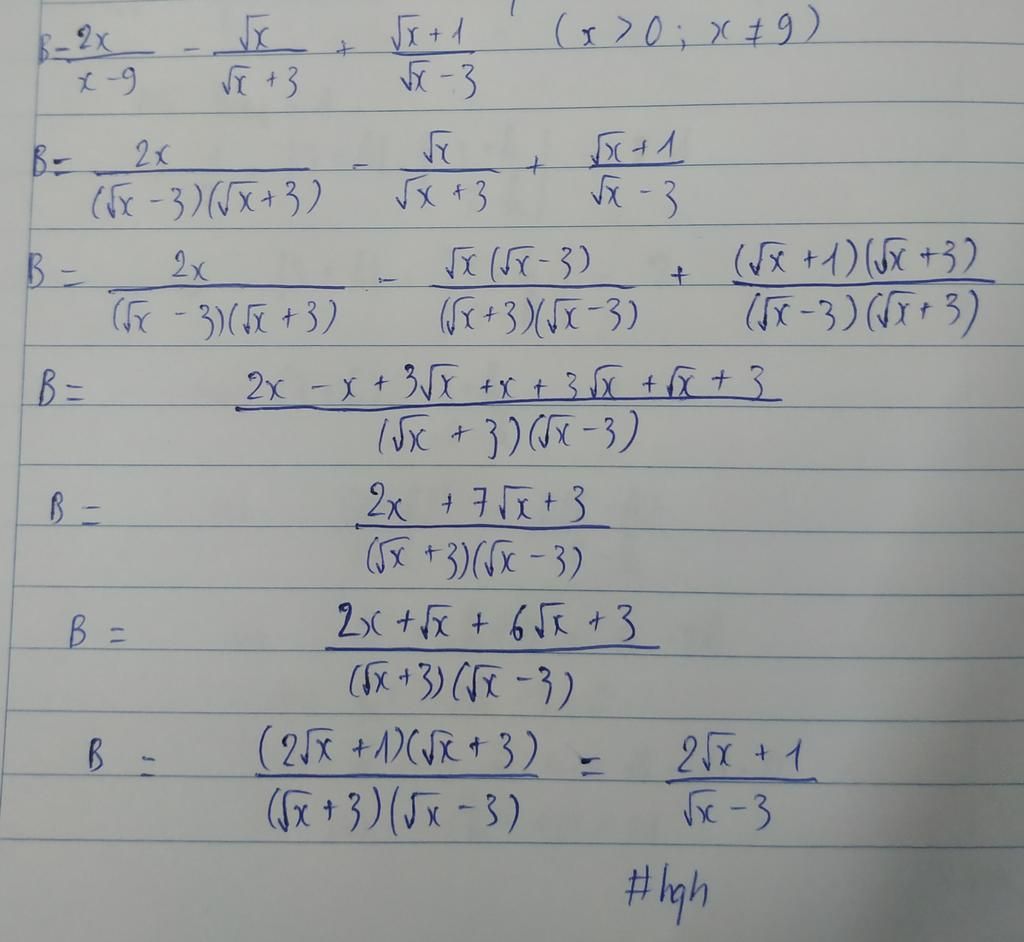 B = 2x/(x - 9) - √x/(√x + 3) + (√x + 1)/(√x - 3) (x > 0 ; x ≠ 9)
B = 2x/((√x - 3)(√x + 3)) - √x/(√x + 3) + (√x + 1)/(√x - 3)
B = 2x/((√x - 3)(√x + 3)) - √x(√x - 3)/((√x + 3)(√x - 3)) + (√x + 1)(√x + 3)/((√x - 3)(√x + 3))
B = (2x - x + 3√x + x + 3√x + √x + 3)/((√x + 3)(√x - 3))
B = (2x + 7√x + 3)/((√x + 3)(√x - 3))
B = (2x + √x + 6√x + 3)/((√x + 3)(√x - 3))
B = (2√x + 1)(√x + 3)/((√x + 3)(√x - 3)) = (2√x + 1)/(√x - 3)
#hqh